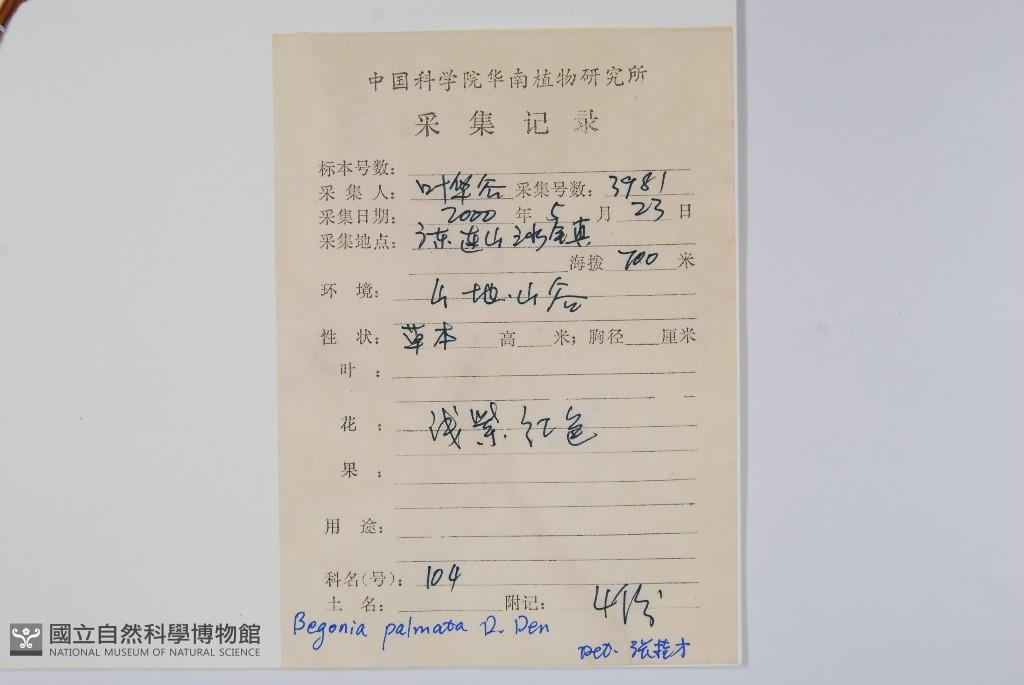 中国科学院华南植物研究所
采集记录
标本号数：
采集人：叶华谷 采集号数：3981
采集日期：2000年5月23日
采集地点：广东连山
海拨 700 米
环境：山地.山谷
性状：草本 高 米；胸径 厘米
叶：
花：浅紫.红色
果：
用途：
科名(号)：104
土名： 附记：4份
Begonia palmata D. Don
Det. 张桂才
國立自然科學博物館
NATIONAL MUSEUM OF NATURAL SCIENCE